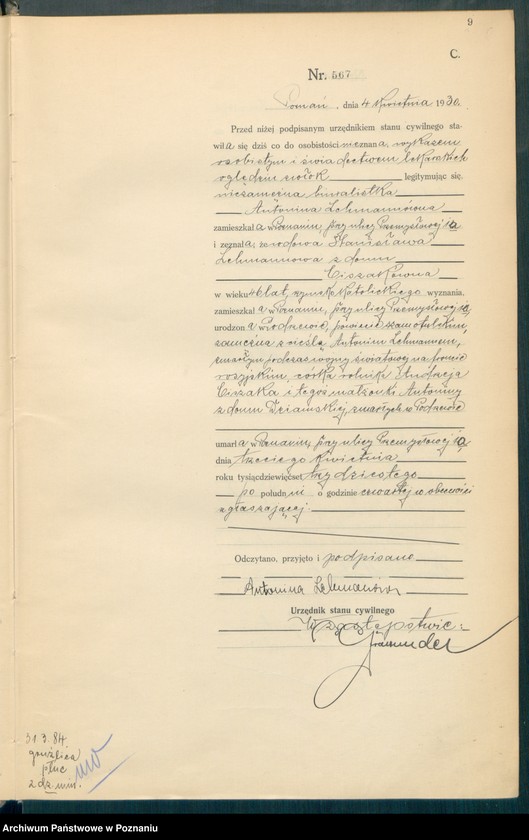 9
C.
Nr. 567
Poznań, dnia 4 Kwietnia 1930.
Przed niżej podpisanym urzędnikiem stanu cywilnego sta-
wiła się dziś co do osobistości nieznana, wykazem
osobistym i świadectwem lekarskich
oględzin zwłok legitymując się,
niezamężna biuralistka
Antonina Lehmannówna
zamieszkała w Poznaniu, przy ulicy Przemysłowej
i zeznała, że wdowa Stanisława
Lehmannowa z domu
Ciszakówna
w wieku 46 lat, rzymsko Katolickiego wyznania,
zamieszkała w Poznaniu, przy ulicy Przemysłowej
urodzona w powiecie szamotulskim,
zamężna z cieślą Antonim Lehmannem,
zmarłym podczas wojny światowej na froncie
rosyjskim, córka rolnika Andrzeja
Ciszaka i tegoż małżonki Antoniny
z domu zmarłych w
umarła w Poznaniu, przy ulicy Przemysłowej
dnia trzeciego Kwietnia
roku tysiącdziewięćset trzydziestego
po południu o godzinie czwartej w obecności
zgłaszającej.
Odczytano, przyjęto i podpisano
Antonina Lehmanówna
Urzędnik stanu cywilnego
W zastępstwie:
31.3.84.
gruźlica
płuc
2 dz. min.
Archiwum Państwowe w Poznaniu